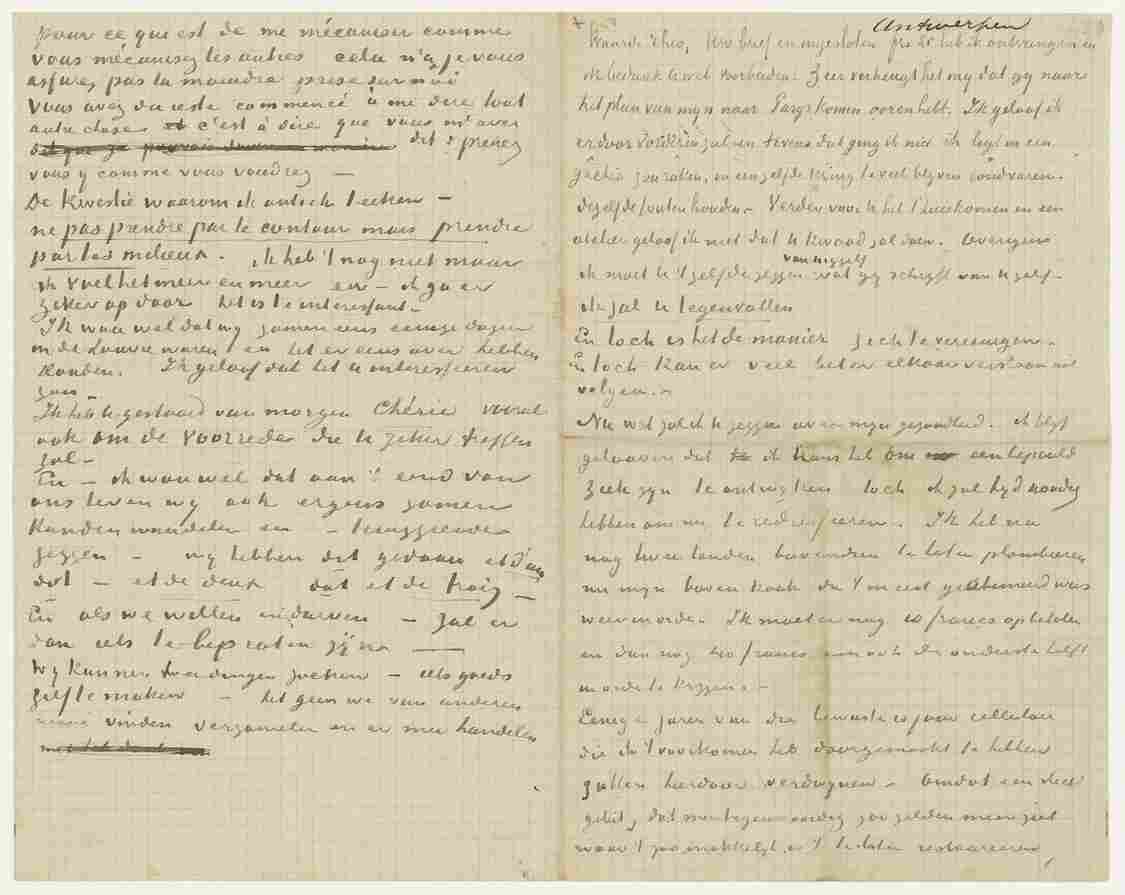 Pour ce qui est de me mécaniser comme
vous mécanisez les autres cela n'a je vous
assure, pas la moindre prise sur moi
Vous avez du reste commencé à me dire tout
autre chose c'est à dire que vous m'avez
dit "prenez
vous y comme vous voudrez —
De kwestie waarom ik antiek teeken —
ne pas prendre par le contour mais prendre
par les milieux. ik heb 't nog niet maar
ik voel het meer en meer en — ik ga er
zeker op door het is te interessant —
Ik wou wel dat wij samen eens eenige dagen
in de Louvre waren en het er eens over hebben
konden. Ik geloof dat het U interesseeren
zou —
Ik heb U gestuurd van morgen Chérie vooral
ook om de voorrede die U zeker treffen
zal —
En — ik wou wel dat aan 't eind van
ons leven wij ook ergens samen
konden wandelen en — terugziende
zeggen — wij hebben dit gedaan et d'un
dat — et de deux dàt et de trois —
En als we willen en durven — zal er
dan iets te bepraten zijn —
Wij kunnen twee dingen zoeken — iets goeds
zelf te maken — het geen we van anderen
mooi vinden verzamelen en er mee handelen
Antwerpen
Waarde Theo, Uw brief en ingesloten frs 25 heb ik ontvangen en
ik bedank U wel voor beiden. Zeer verheugt het mij dat gij naar
het plan van mijn naar Parijs komen ooren hebt. Ik geloof ik
er door vorderen zal en tevens dat ging ik niet ik ligt in een
gachis zou raken, in een zelfde kring te veel blijven rondvaren,
dezelfde fouten houden. Verder voor U het thuiskomen in een
atelier geloof ik niet dat U kwaad zal doen. Overigens
ik moet U 't zelfde zeggen van mijzelf wat gij schrijft van U zelf —
ik zal U tegenvallen
En toch is het de manier zich te vereenigen.
En toch kan er veel beter elkaar verstaan uit
volgen. —
Nu wat zal ik U zeggen over mijn gezondheid. ik blijf
gelooven dat ik kans heb om een bepaald
ziek zijn te ontwijken toch ik zal tijd noodig
hebben om me te redresseeren. Ik heb nu
nog twee tanden bovendien te laten plombeeren
nu mijn boven kaak die 't meest geabimeerd was
weer in orde. Ik moet er nog 10 francs op betalen
en dan nog 40 francs om ook de onderste helft
in orde te krijgen. —
Eenige jaren van die bewuste 10 jaar cellulair
die ik 't voorkomen heb doorgemaakt te hebben
zullen hierdoor verdwijnen — Omdat een slecht
gebit, dat men tegenwoordig zoo zelden meer ziet
waar 't zoo makkelijk is 't te laten restaureeren,